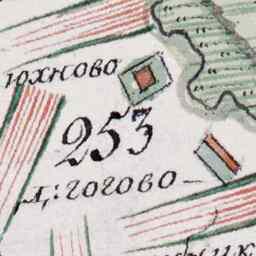 юхново
253
д: гогово